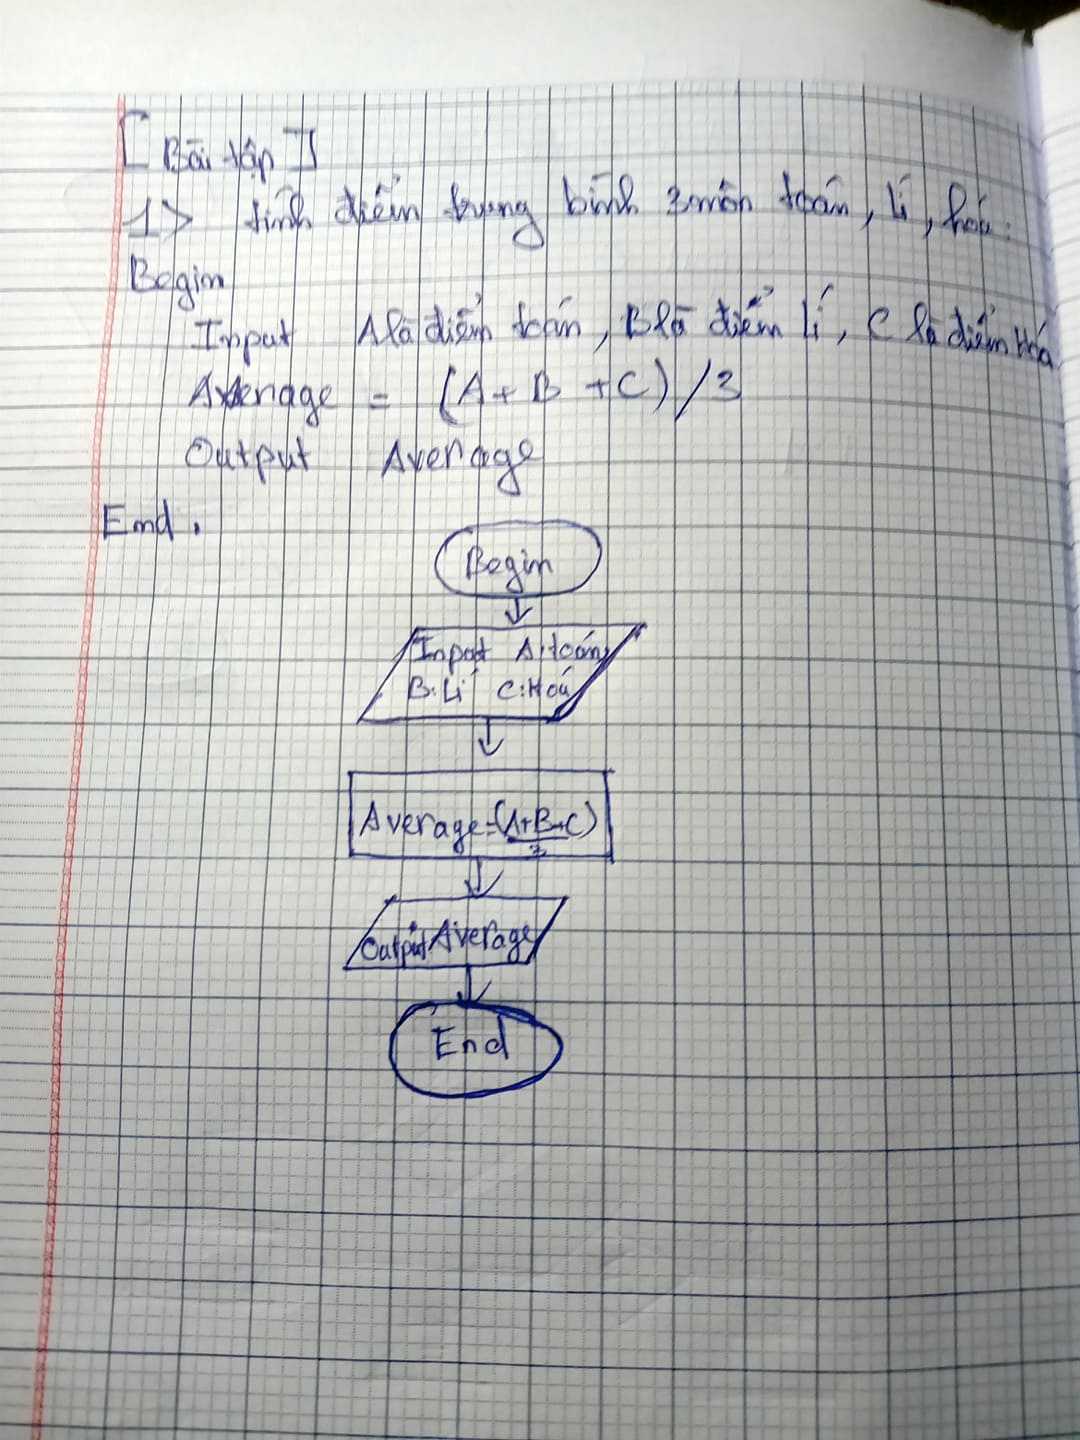 [Bài tập]
1> tính điểm trung bình 3 môn toán, lí, hóa.
Begin
Input A là điểm toán, B là điểm lí, C là điểm Hóa
Average = (A + B + C) / 3
Output Average
End.
Begin
Input A: toán,
B: Lí C: Hoá
Average = (A+B+C)
3
Output Average
End